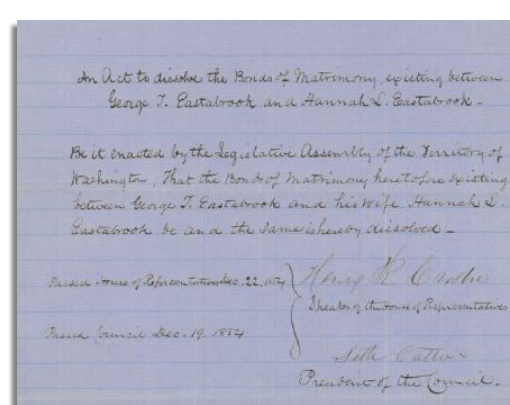 An Act to dissolve the Bonds of Matrimony, existing between
George T. Eastabrook and Hannah L. Eastabrook –
Be it enacted by the Legislative Assembly of the Territory of
Washington, That the Bonds of Matrimony heretofore existing
between George T. Eastabrook and his wife Hannah L.
Eastabrook be and the same is hereby dissolved –
Passed House of Representatives Dec. 22, 1854
Henry R. Crosbie
Speaker of the House of Representatives
Passed Council Dec. 19. 1854
Seth Catlin
President of the Council.